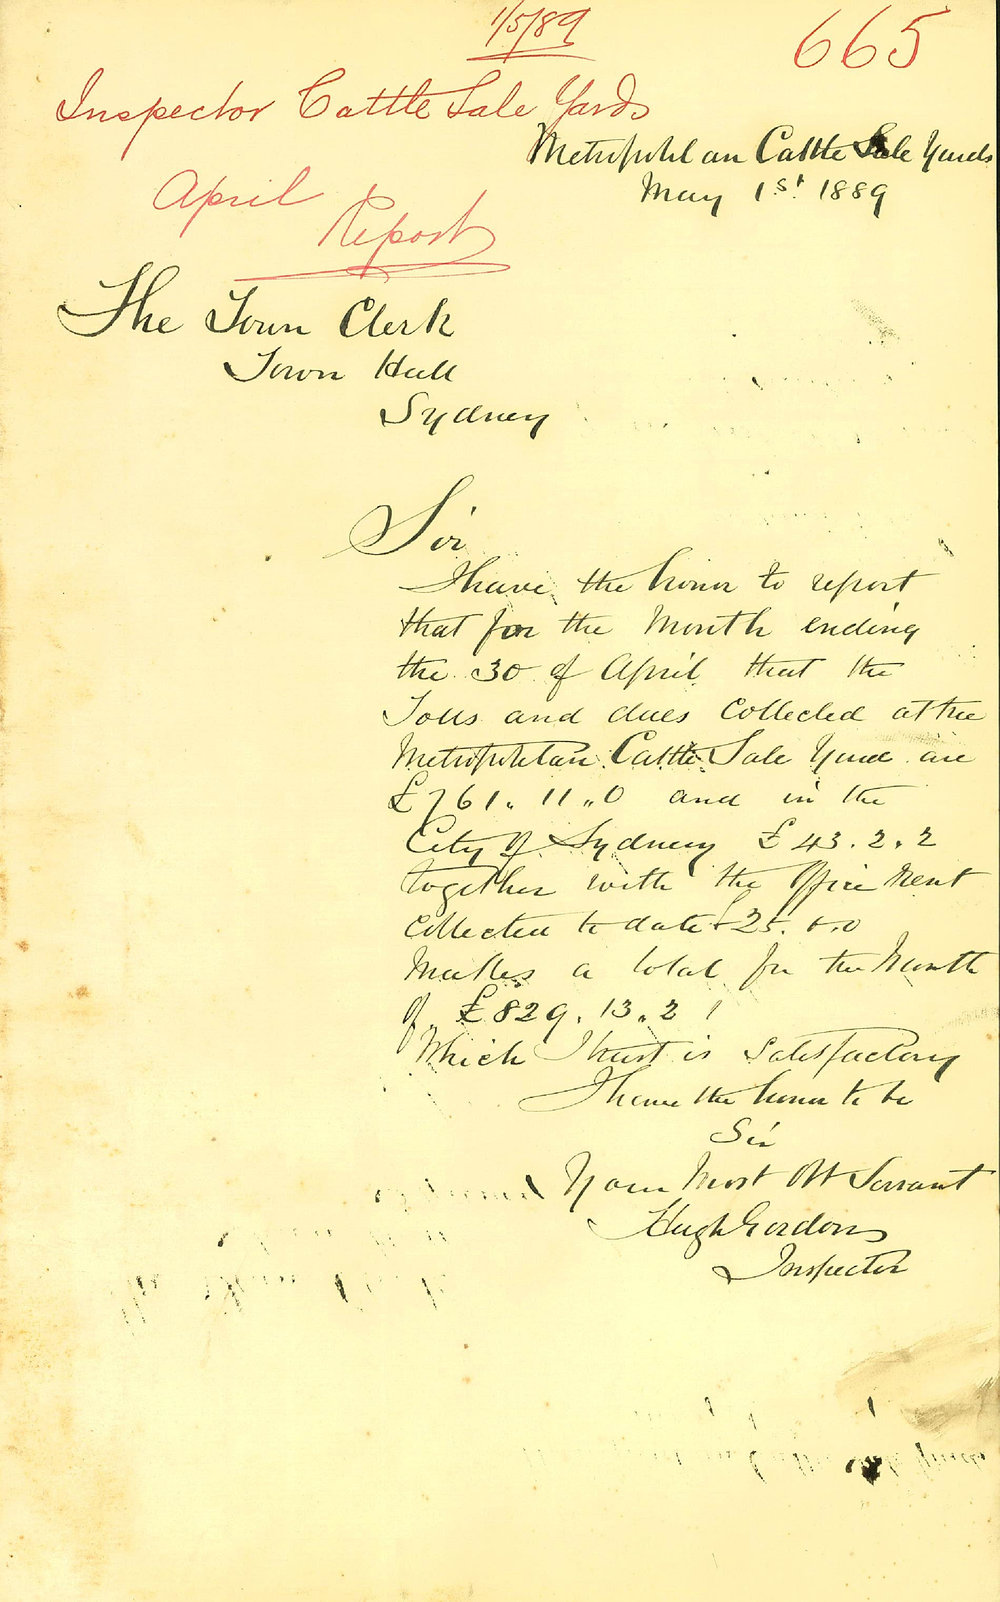 1/5/89
665
Inspector Cattle Sale Yards
Metropolitan Cattle Sale Yards
May 1st 1889
April
Report
The Town Clerk
Town Hall
Sydney
Sir
I have the honor to report
that for the Month ending
the 30 of April that the
Tolls and dues Collected at the
Metropolitan Cattle Sale Yard are
£761. 11. 0 and in the
City of Sydney £43. 2. 2
together with the Office Rent
Collected to date £25. 0. 0
Makes a total for the Month
of £829. 13. 2
Which I trust is Satisfactory
I have the honor to be
Sir
Your Most Obt Servant
Hugh Gordon
Inspector